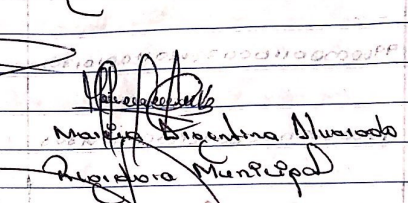 Maria Argentina Alvarado
Regidora Municipal